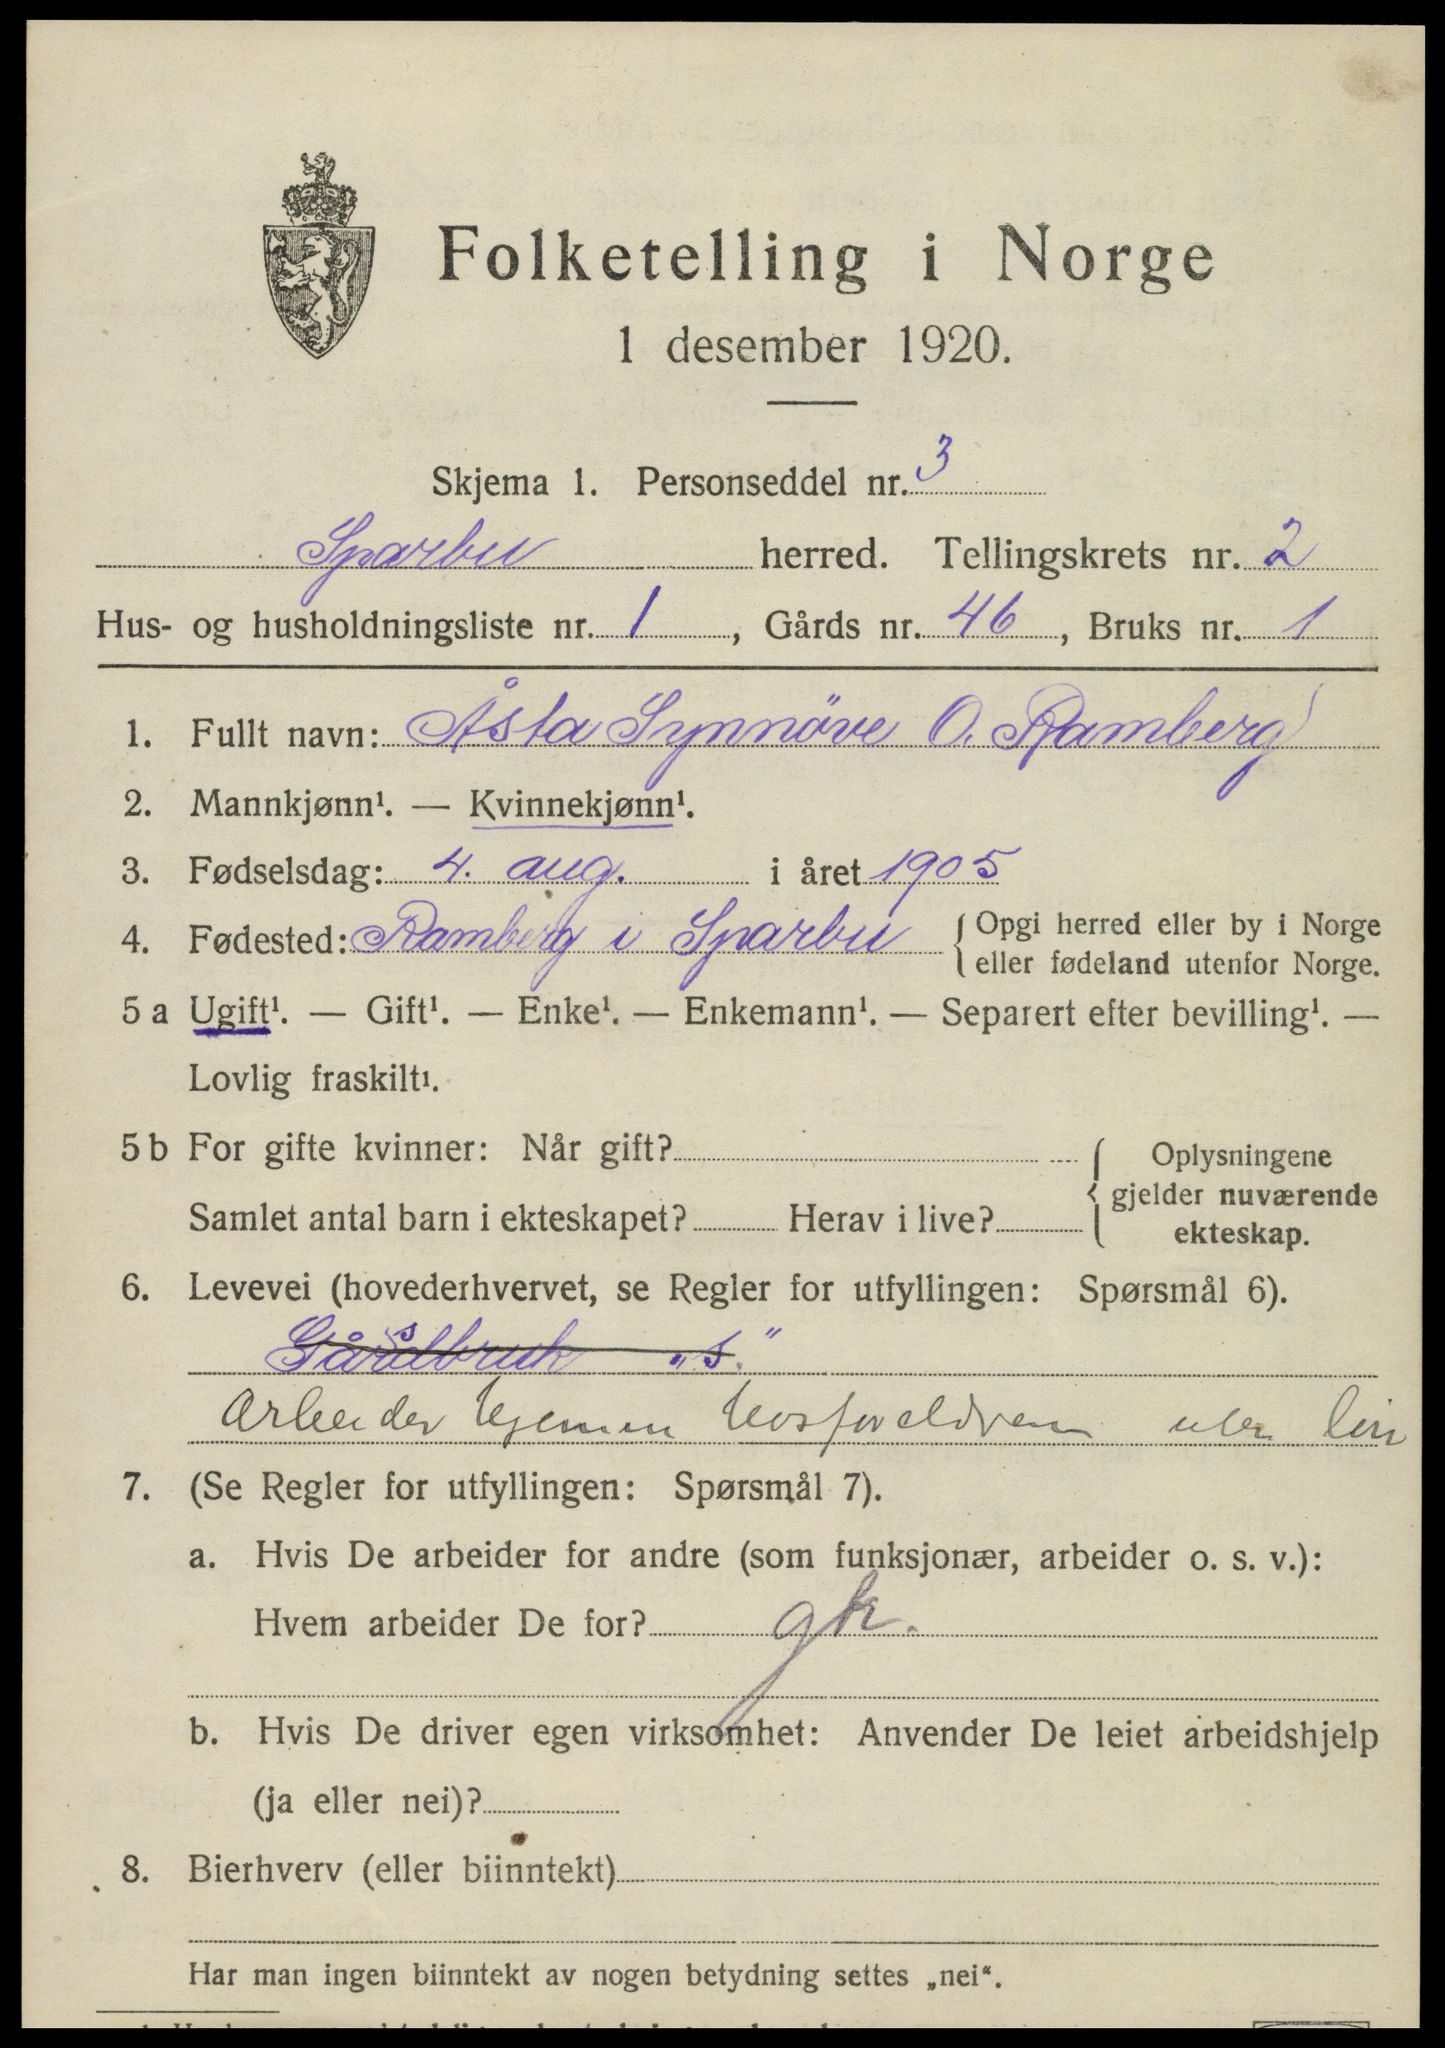 Folketelling i Norge
1 desember 1920.
Skjema 1. Personseddel nr. 3
Sparbu herred. Tellingskrets nr. 2
Hus- og husholdningsliste nr. 1, Gårds nr. 46, Bruks nr. 1
1. Fullt navn: Åsta Synnöve O. Ramberg
2. Mannkjønn¹. — Kvinnekjønn¹.
3. Fødselsdag: 4. aug. i året 1905
4. Fødested: Ramberg i Sparbu { Opgi herred eller by i Norge
eller fødeland utenfor Norge.
5 a Ugift¹. — Gift¹. — Enke¹. — Enkemann¹. — Separert efter bevilling¹. —
Lovlig fraskilt¹.
5 b For gifte kvinner: Når gift? { Oplysningene
gjelder nuværende
Samlet antal barn i ekteskapet? Herav i live?
ekteskap.
6. Levevei (hovederhvervet, se Regler for utfyllingen: Spørsmål 6).
Gårdsbruk „s"
Arbeider hjemme hos foreldrene uten lön
7. (Se Regler for utfyllingen: Spørsmål 7).
a. Hvis De arbeider for andre (som funksjonær, arbeider o. s. v.):
Hvem arbeider De for? gk.
b. Hvis De driver egen virksomhet: Anvender De leiet arbeidshjelp
(ja eller nei)?
8. Bierhverv (eller biinntekt)
Har man ingen biinntekt av nogen betydning settes „nei“.